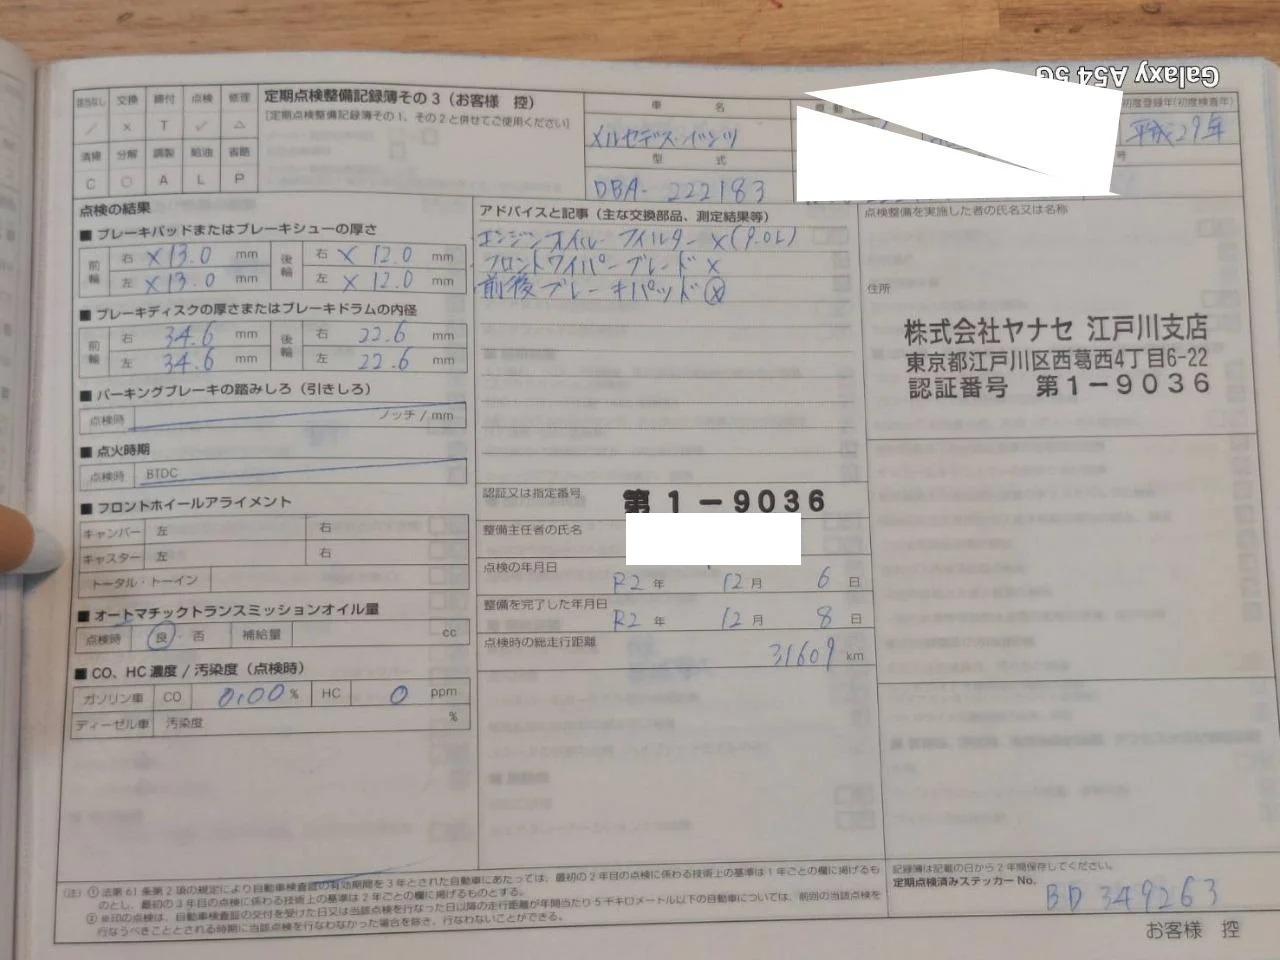 Galaxy A54 5G
該当なし 交換 締付 点検 修理
／ × T ✓ △
清掃 分解 調整 給油 省略
C ○ A L P
定期点検整備記録簿その3（お客様 控）
[定期点検整備記録簿その1、その2と併せてご使用ください]
車 名
メルセデス・ベンツ
型 式
DBA- 222183
初度登録年(初度検査年)
平成29年
号
点検の結果
■ ブレーキパッドまたはブレーキシューの厚さ
前輪 右 ×13.0 mm 後輪 右 × 12.0 mm
左 ×13.0 mm 左 × 12.0 mm
■ ブレーキディスクの厚さまたはブレーキドラムの内径
前輪 右 34.6 mm 後輪 右 22.6 mm
左 34.6 mm 左 22.6 mm
■ パーキングブレーキの踏みしろ（引きしろ）
点検時 ノッチ / mm
■ 点火時期
点検時 BTDC
■ フロントホイールアライメント
キャンバー 左 右
キャスター 左 右
トータル・トーイン
■ オートマチックトランスミッションオイル量
点検時 良・否 補給量 cc
■ CO、HC 濃度 / 汚染度（点検時）
ガソリン車 CO 0.00 % HC 0 ppm
ディーゼル車 汚染度 %
アドバイスと記事（主な交換部品、測定結果等）
エンジンオイル フィルター ×(9.0L)
フロントワイパーブレード ×
前後ブレーキパッド ⓧ
認証又は指定番号 第1－9036
整備主任者の氏名
点検の年月日 R2 年 12 月 6 日
整備を完了した年月日 R2 年 12 月 8 日
点検時の総走行距離 31609 km
点検整備を実施した者の氏名又は名称
住所
株式会社ヤナセ 江戸川支店
東京都江戸川区西葛西4丁目6-22
認証番号 第1－9036
(注) ① 法第 61 条第 2 項の規定により自動車検査証の有効期間を 3 年とされた自動車にあたっては、最初の 2 年目の点検に係わる技術上の基準は 1 年ごとの欄に掲げるも
のとし、最初の 3 年目の点検に係わる技術上の基準は 2 年ごとの欄に掲げるものとする。
② ※印の点検は、自動車検査証の交付を受けた日又は当該点検を行なった日以降の走行距離が年間当たり 5 千キロメートル以下の自動車については、前回の当該点検を
行なうべきこととされる時期に当該点検を行なわなかった場合を除き、行なわないことができる。
記録簿は記載の日から 2 年間保存してください。
定期点検済みステッカー No.
BD 349263
お客様 控